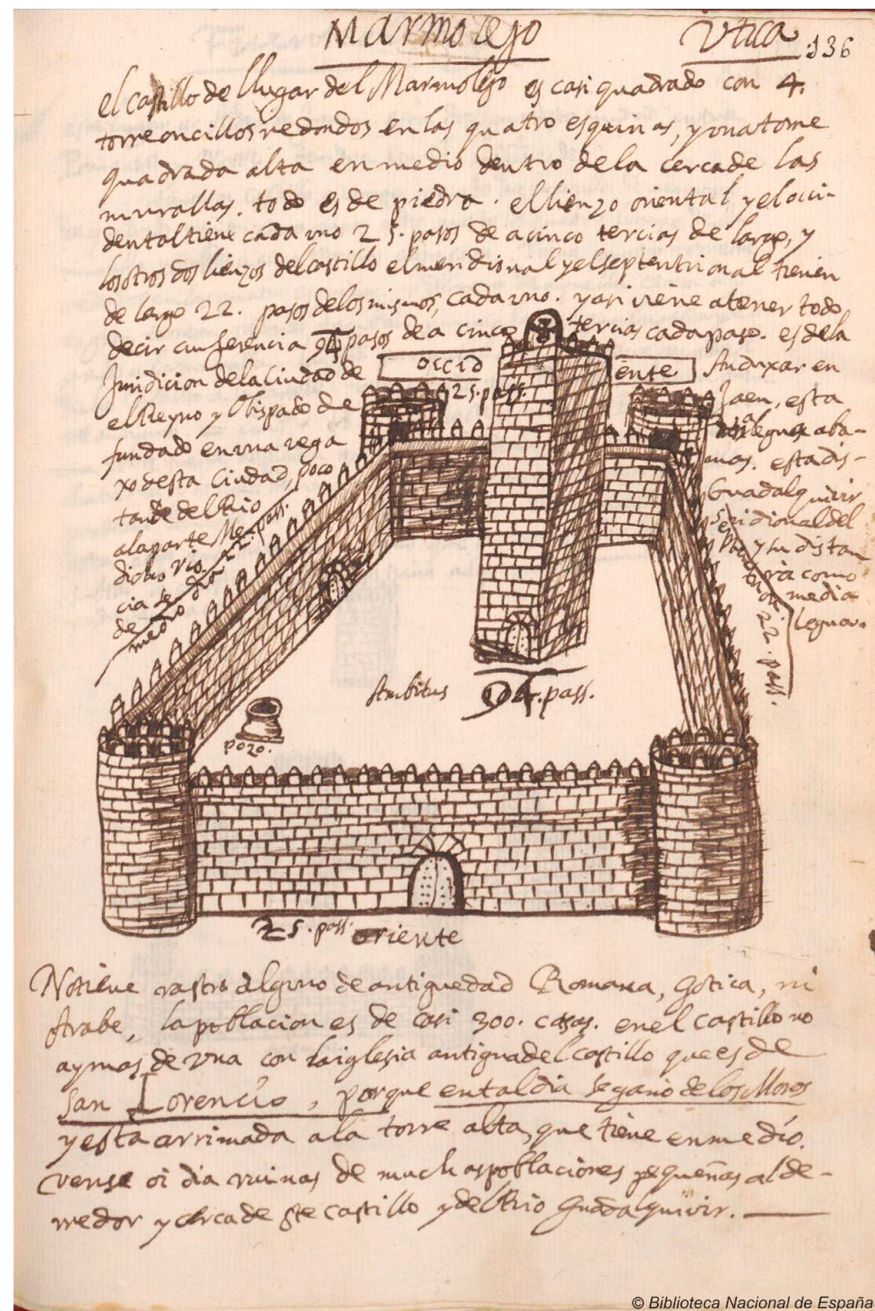 Marmolejo
Utica
136
el castillo del lugar del Marmolejo es casi quadrado con 4.
torreoncillos redondos en las quatro esquinas, y una torre
quadrada alta en medio dentro de la cerca de las
murallas. todo es de piedra. el lienzo oriental y el occi-
dental tiene cada uno 25. pasos de a cinco tercias de largo, y
los otros dos lienzos del castillo el meridional y el septentrional tienen
de largo 22. pasos de los mismos, cada uno. y asi viene a tener todo
de circunferencia 94 pasos de a cinco tercias cada paso. es de la
Juridicion de la Ciudad de Anduxar en
el Reyno y Obispado de Jaen, esta
fundado en una vega leguas aba-
xo desta Ciudad, poco mas. esta dis-
tante del Rio Guadalquivir
a la parte Meridional del
dicho rio y su distan
cia de como
media
legua.
occidente
25. pass.
medio dia 22. pass.
22. pass.
Ambitus 94. pass.
pozo.
25. pass. oriente
No tiene rastro alguno de antiguedad Romana, Gotica, ni
Arabe, la poblacion es de casi 300. casas. en el castillo no
ay mas de una con la iglesia antigua del castillo que es de
San Lorencio, porque en tal dia se gano de los Moros
y esta arrimada a la torre alta, que tiene en medio.
vense oi dia ruinas de muchas poblaciones pequeñas al de-
rredor y cerca de este castillo y del Rio Guadalquivir.
© Biblioteca Nacional de España